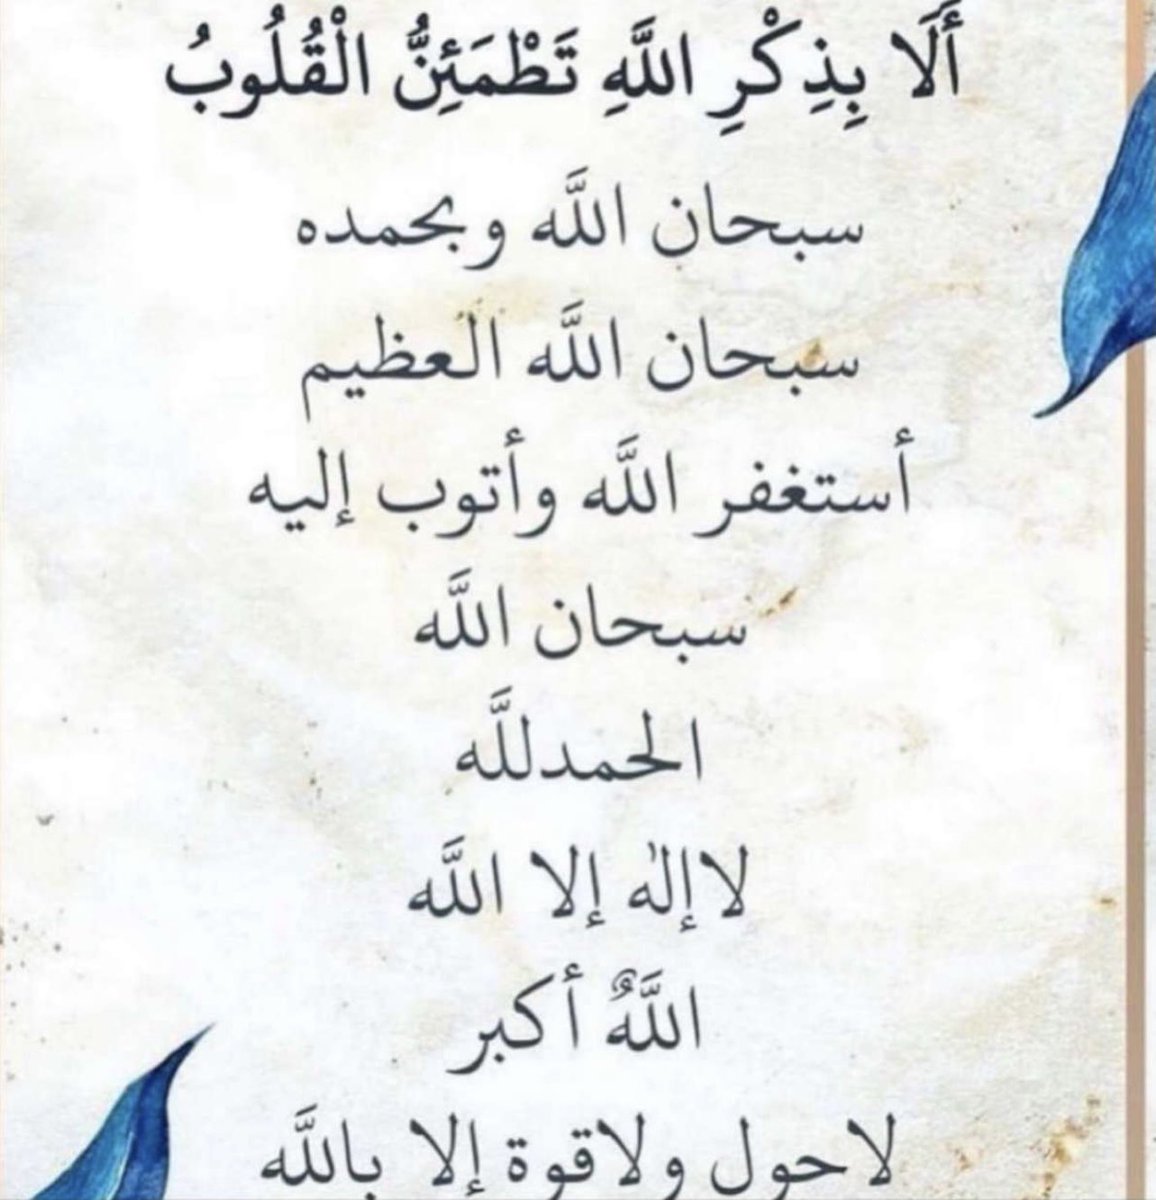 أَلَا بِذِكْرِ اللَّهِ تَطْمَئِنُّ الْقُلُوبُ
سبحان اللَّه وبحمده
سبحان اللَّه العظيم
أستغفر اللَّه وأتوب إليه
سبحان اللَّه
الحمدللَّه
لاإلٰه إلا اللَّه
اللَّهٌ أكبر
لاحول ولاقوة إلا باللَّه